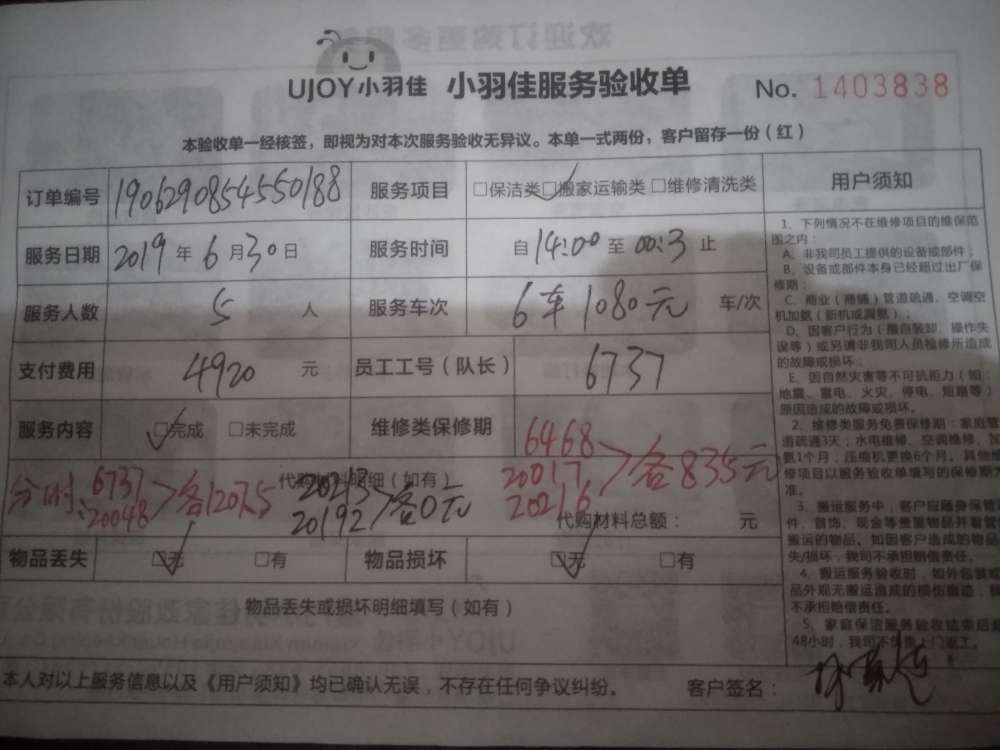 UJOY小羽佳 小羽佳服务验收单 No. 1403838
本验收单一经核签，即视为对本次服务验收无异议。本单一式两份，客户留存一份（红）
订单编号 190629085455​0188 服务项目 □保洁类 □搬家运输类 □维修清洗类
服务日期 2019 年 6 月 30 日 服务时间 自 14:00 至 00:3 止
服务人数 5 人 服务车次 6车1080元 车/次
支付费用 4920 元 员工工号（队长） 6737
服务内容 □完成 □未完成 维修类保修期
代购材料明细（如有）
分时: 6737 20048 >各1207.5 20213 20192 >各0元 6468 20017 20216 >各835元
代购材料总额： 元
物品丢失 □无 □有 物品损坏 □无 □有
物品丢失或损坏明细填写（如有）
本人对以上服务信息以及《用户须知》均已确认无误，不存在任何争议纠纷。 客户签名：
用户须知
1、下列情况不在维修项目的维保范
围之内：
A、非我司员工提供的设备或部件；
B、设备或部件本身已经超过出厂保
修期；
C、商业（商铺）管道疏通、空调空
机加氨（新机或漏氨）；
D、因客户行为（擅自装卸、操作失
误等）或另请非我司人员检修所造成
的故障或损坏；
E、因自然灾害等不可抗拒力（如：
地震、雷电、火灾、停电、短路等）
原因造成的故障或损坏。
2、维修类服务免费保修期：家庭管
道疏通3天；水电维修、空调维修、加
氨1个月；压缩机更换6个月。其他维
修项目以服务验收单填写的保修期
准。
3、搬运服务中，客户应随身保管
件、首饰、现金等贵重物品并看管
搬运的物品。如因客户造成的物品
失/损坏，我司不承担赔偿责任。
4、搬运服务验收时，如外包装或
品外观无搬运造成的损伤痕迹，
不承担赔偿责任。
5、家庭保洁服务验收结束后超
48小时，我司不上门返工。